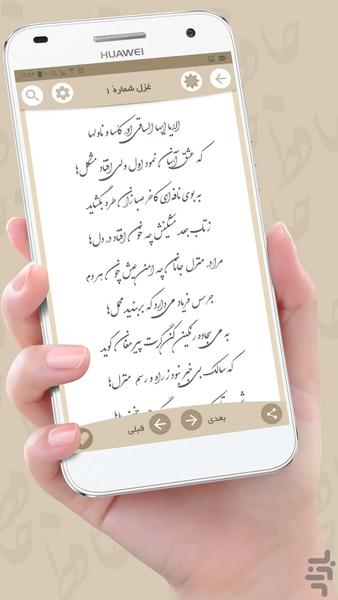 HUAWEI
غزل شمارهٔ ۱
الا یا ایها الساقی ادر کاسا و ناولها
که عشق آسان نمود اول ولی افتاد مشکل‌ها
به بوی نافه‌ای کاخر صبا زان طره بگشاید
ز تاب جعد مشکینش چه خون افتاد در دل‌ها
مرا در منزل جانان چه امن عیش چون هر دم
جرس فریاد می‌دارد که بربندید محمل‌ها
به می سجاده رنگین کن گرت پیر مغان گوید
که سالک بی‌خبر نبود ز راه و رسم منزل‌ها
قبلی
بعدی
بازار